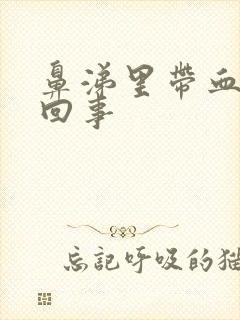 鼻涕里带血
回事
忘记呼吸的猫